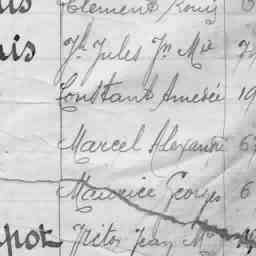 Clement Louis
is Jh Jules Jn Mie 7
Constant Amedée 19
Marcel Alexandre 6
Maurice Georges 6
pot Jean Mie